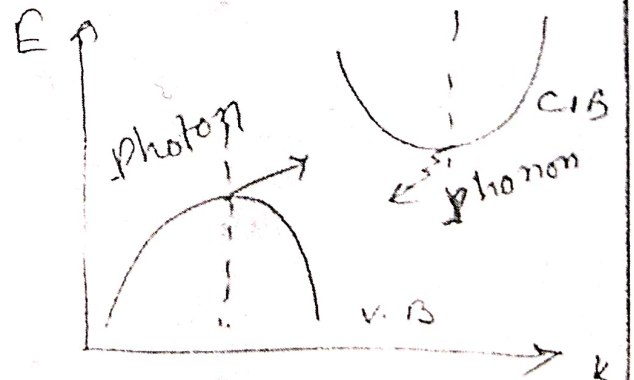 E
photon
C.B
phonon
V.B
k